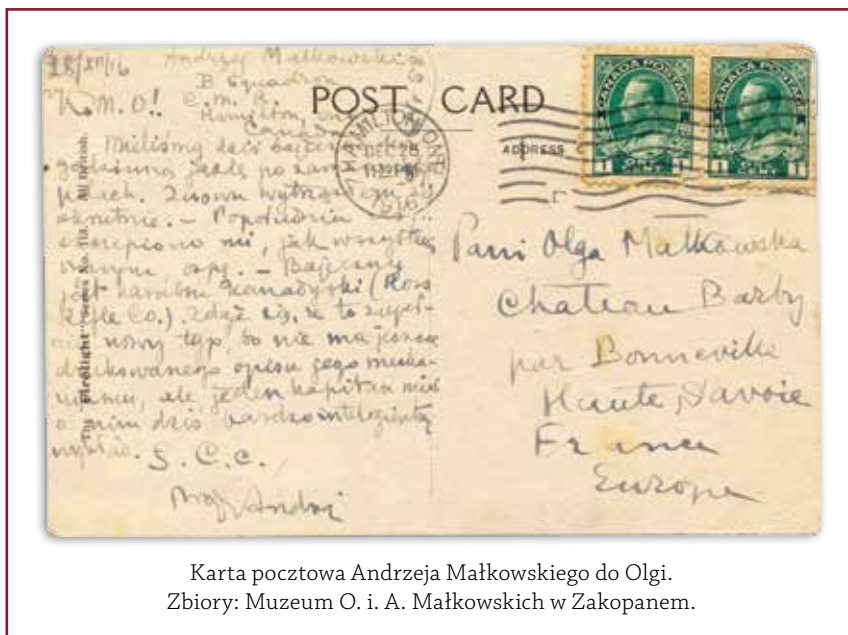 28/XII/16
Andrzej Małkowski
B Squadron
C. M. R.
Hamilton, Ont.
Canada
K. M. O!
Mieliśmy dziś
godzinną jazdę po
Znowu
okrutnie. – Popołudniu
zaszczepiono mi, jak wszystkim
innym ospę. – Bajeczny
jest karabin kanadyjski (Ross
Rifle Co.). Zdaje się, że to zupeł-
nie nowy typ, bo nie ma jeszcze
drukowanego opisu jego mecha-
nizmu, ale jeden kapitan miał
o nim dziś bardzo inteligentny
wykład. S. C. C.
Andrzej
The "Firelight" Series No. 113. All British.
POST CARD
ADDRESS
HAMILTON, ONT.
DEC 28
1916
CANADA POSTAGE
1 ONE CENT 1
CANADA POSTAGE
1 ONE CENT 1
Pani Olga Małkowska
Chateau Barby
par Bonneville
Haute Savoie
France
Europe
Karta pocztowa Andrzeja Małkowskiego do Olgi.
Zbiory: Muzeum O. i. A. Małkowskich w Zakopanem.